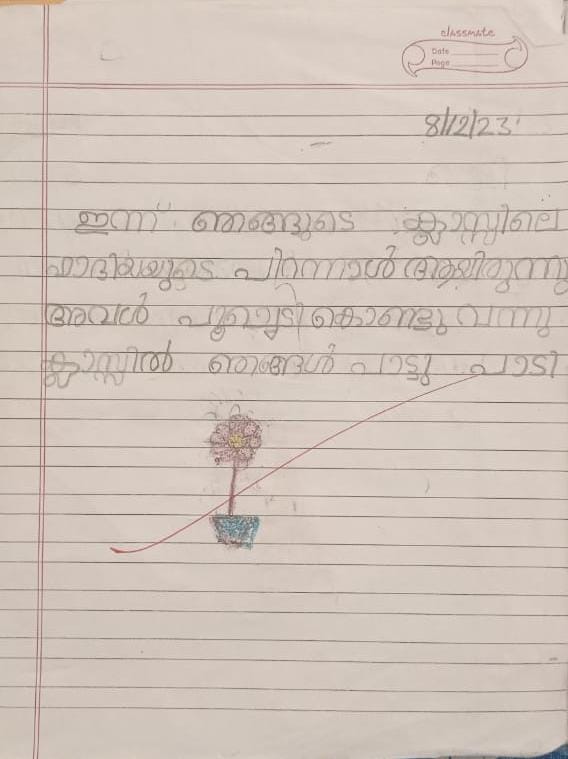 classmate
Date
Page
8/12/23
ഇന്ന് ഞങ്ങളുടെ ക്ലാസ്സിലെ
ഫാദിയയുടെ പിറന്നാൾ ആയിരുന്നു
അവൾ പൂച്ചെടി കൊണ്ടു വന്നു
ക്ലാസ്സിൽ ഞങ്ങൾ പാട്ടു പാടി